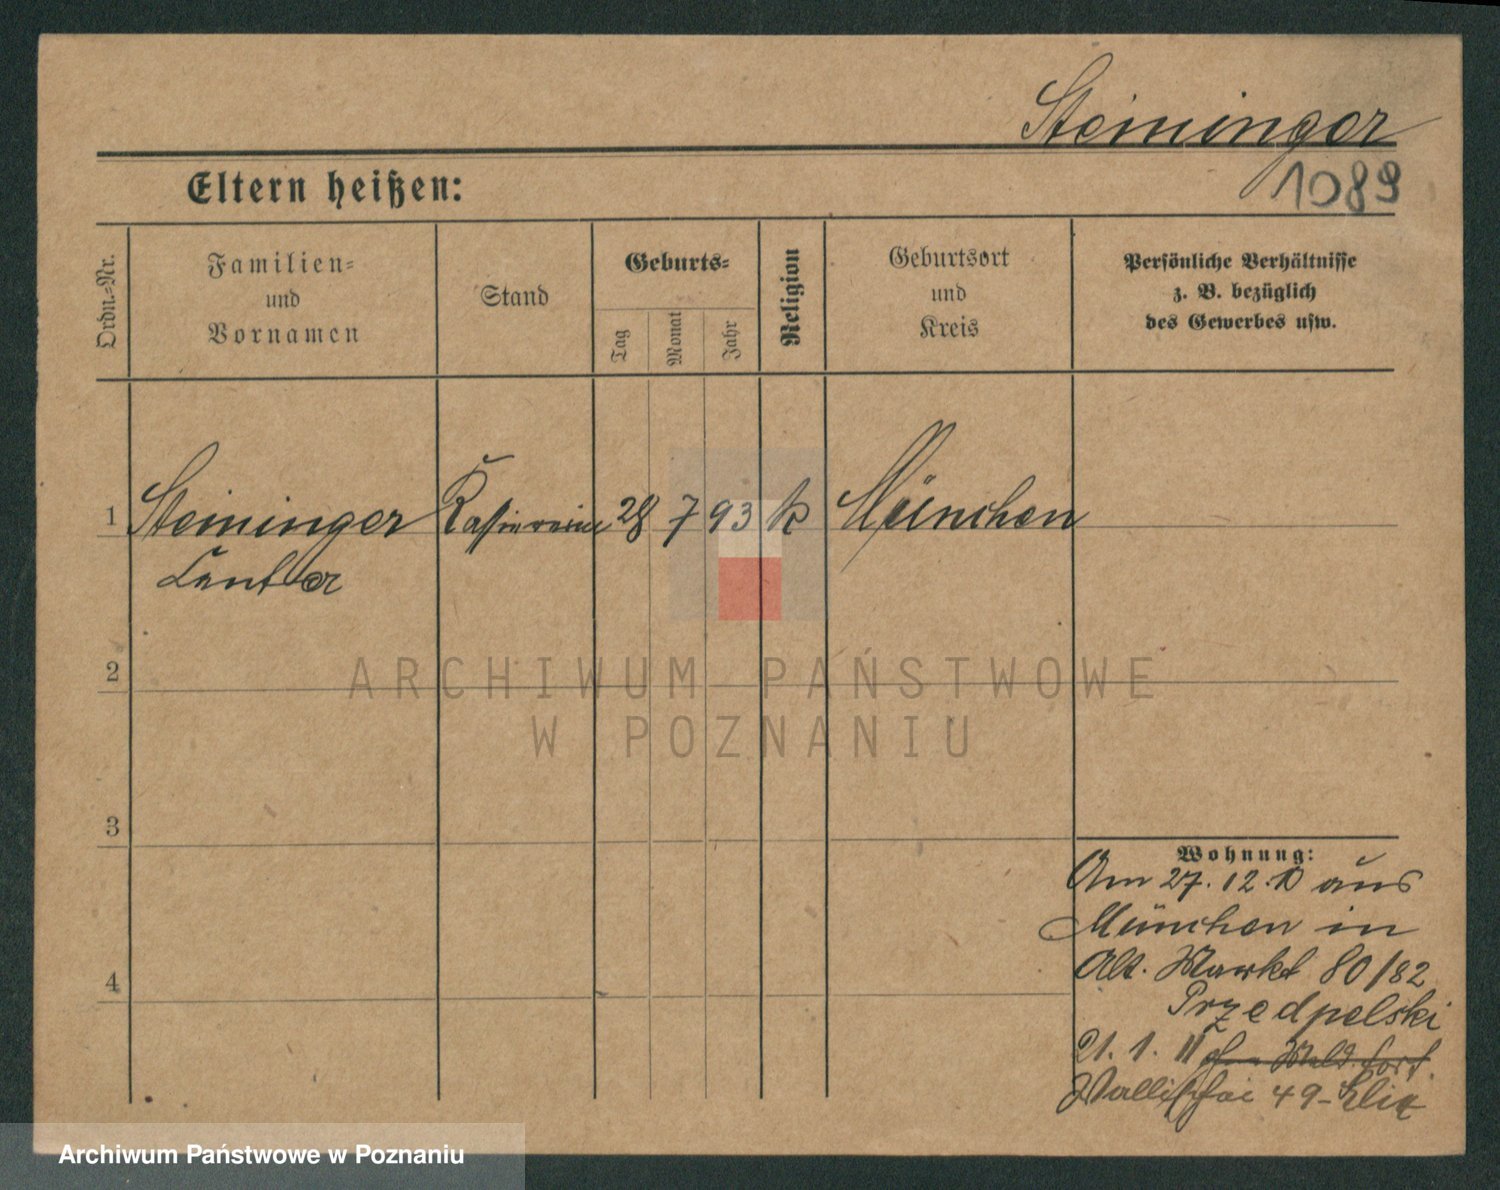 Steininger
1089
Eltern heißen:
Ordn.-Nr.
Familien-
und
Vornamen
Stand
Geburts-
Tag
Monat
Jahr
Religion
Geburtsort
und
Kreis
Persönliche Verhältnisse
z. B. bezüglich
des Gewerbes usw.
1 Steininger 28 7 93 k München
2
3
4
Wohnung:
Am 27.12.10 aus
München in
Alt. Markt 80/82
Przedpelski
21. 1. 11
49-
ARCHIWUM PAŃSTWOWE
W POZNANIU
Archiwum Państwowe w Poznaniu